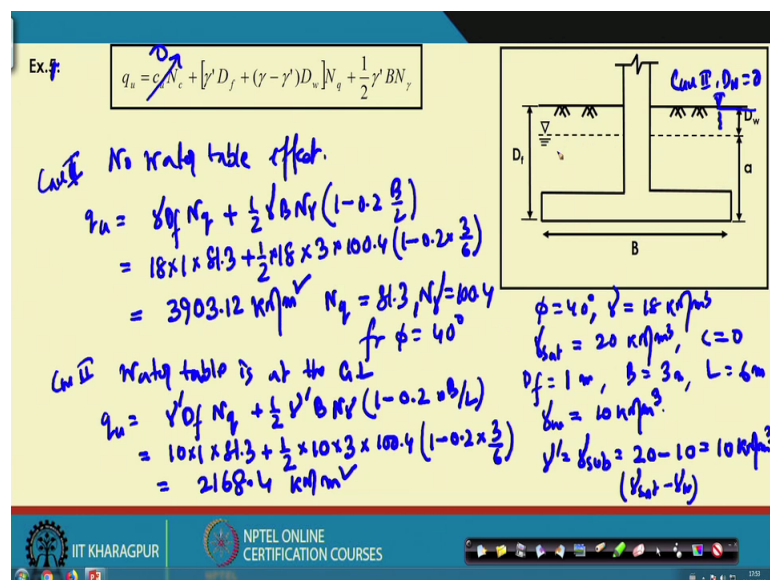 Ex.5:
0
q_u = c_u N_c + [γ' D_f + (γ − γ') D_w] N_q + 1/2 γ' B N_γ
Case I No water table effect.
q_u = γ D_f N_q + 1/2 γ B N_γ (1 − 0.2 B/L)
= 18 × 1 × 81.3 + 1/2 × 18 × 3 × 100.4 (1 − 0.2 × 3/6)
= 3903.12 kN/m² N_q = 81.3, N_γ = 100.4
fr φ = 40°
Case II Water table is at the GL
q_u = γ' D_f N_q + 1/2 γ' B N_γ (1 − 0.2 × B/L)
= 10 × 1 × 81.3 + 1/2 × 10 × 3 × 100.4 (1 − 0.2 × 3/6)
= 2168.4 kN/m²
Case II, D_w = 0
D_w
D_f
a
B
φ = 40°, γ = 18 kN/m³
γ_sat = 20 kN/m³, C = 0
D_f = 1 m, B = 3 m, L = 6 m
γ_w = 10 kN/m³.
γ' = γ_sub = 20 − 10 = 10 kN/m³
(γ_sat − γ_w)
IIT KHARAGPUR
NPTEL ONLINE
CERTIFICATION COURSES
17:53